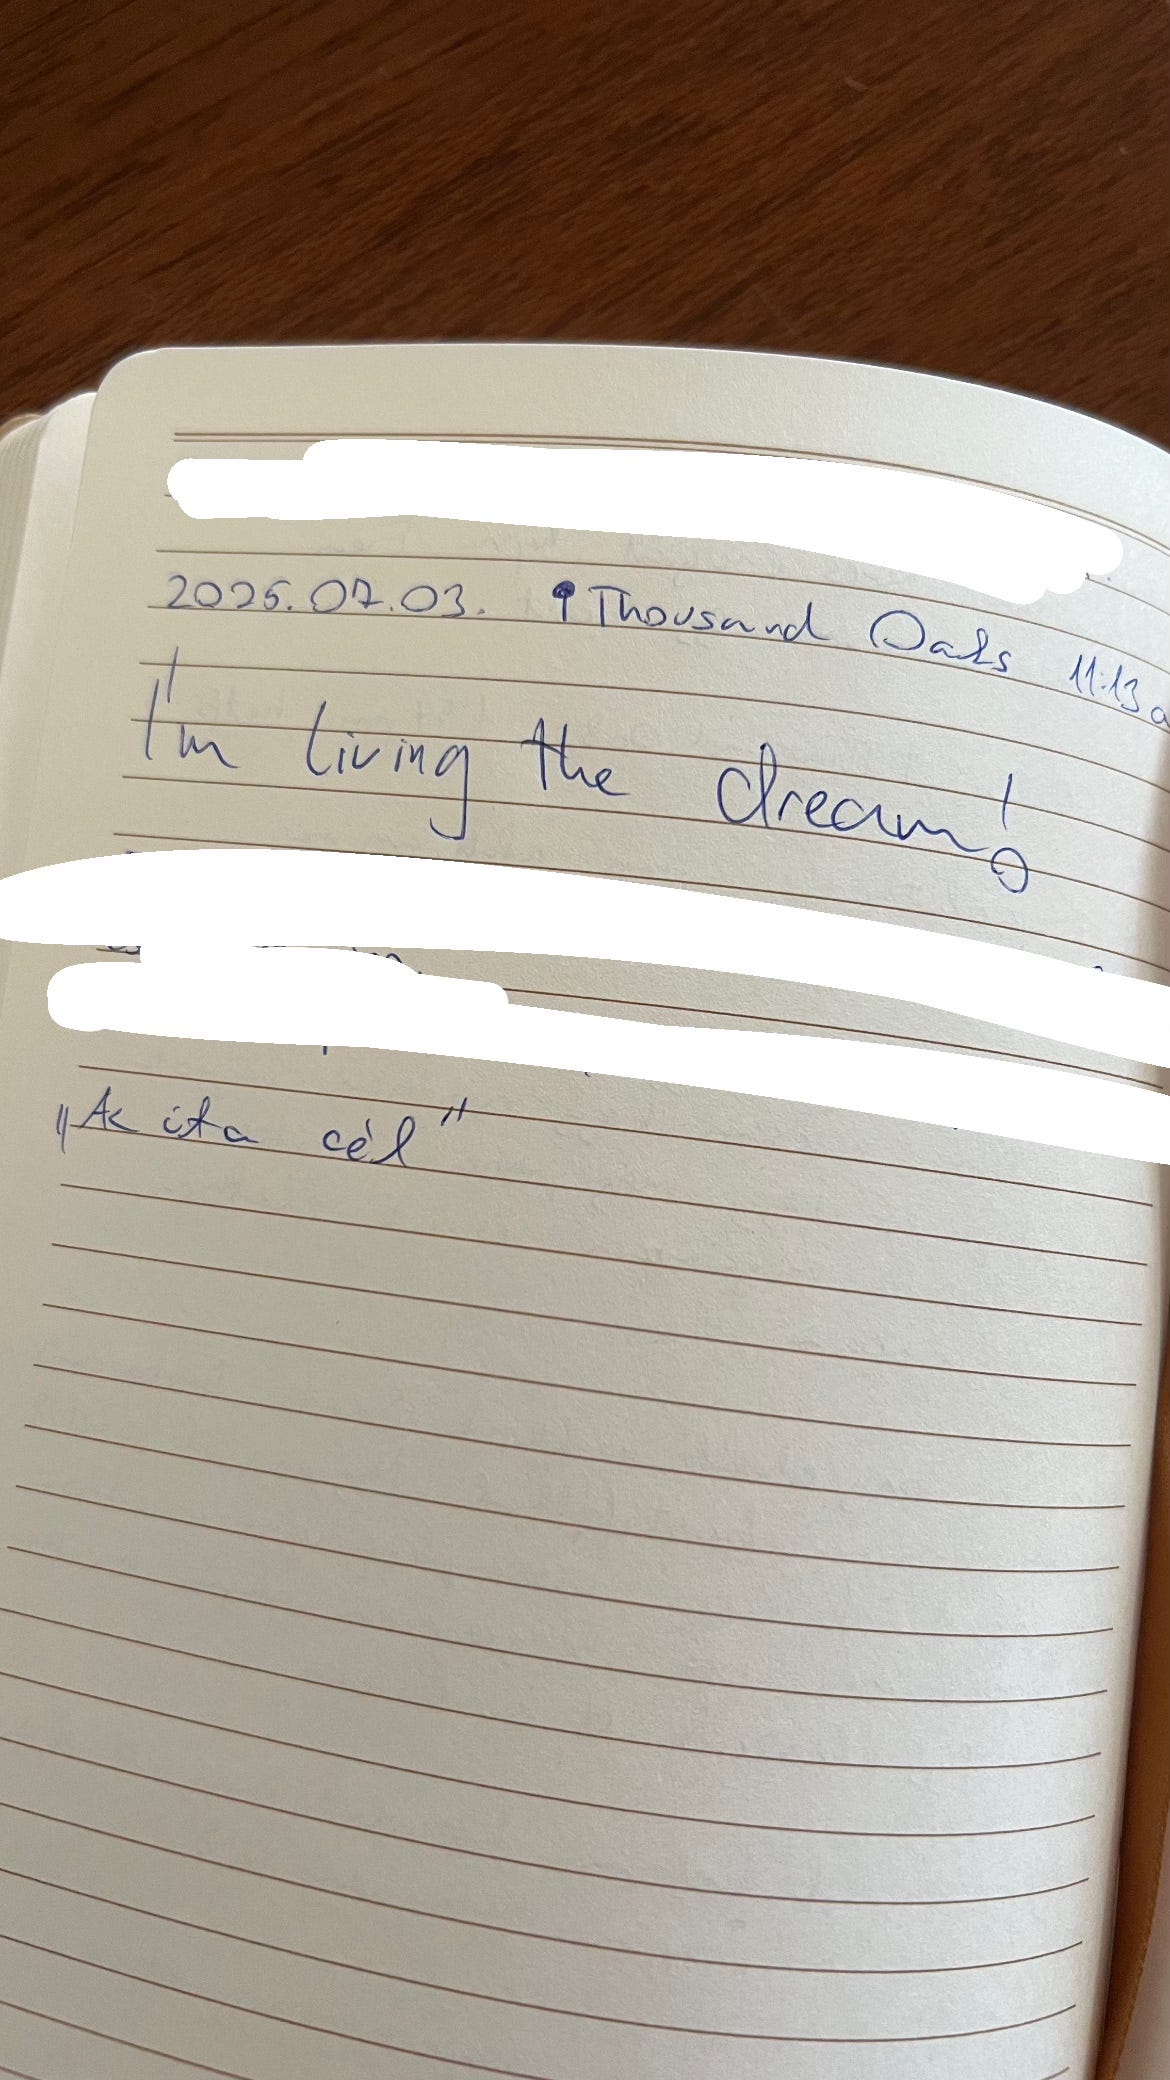 2025.07.03. Thousand Oaks 11:13 a
I'm living the dream!
„Az út a cél”